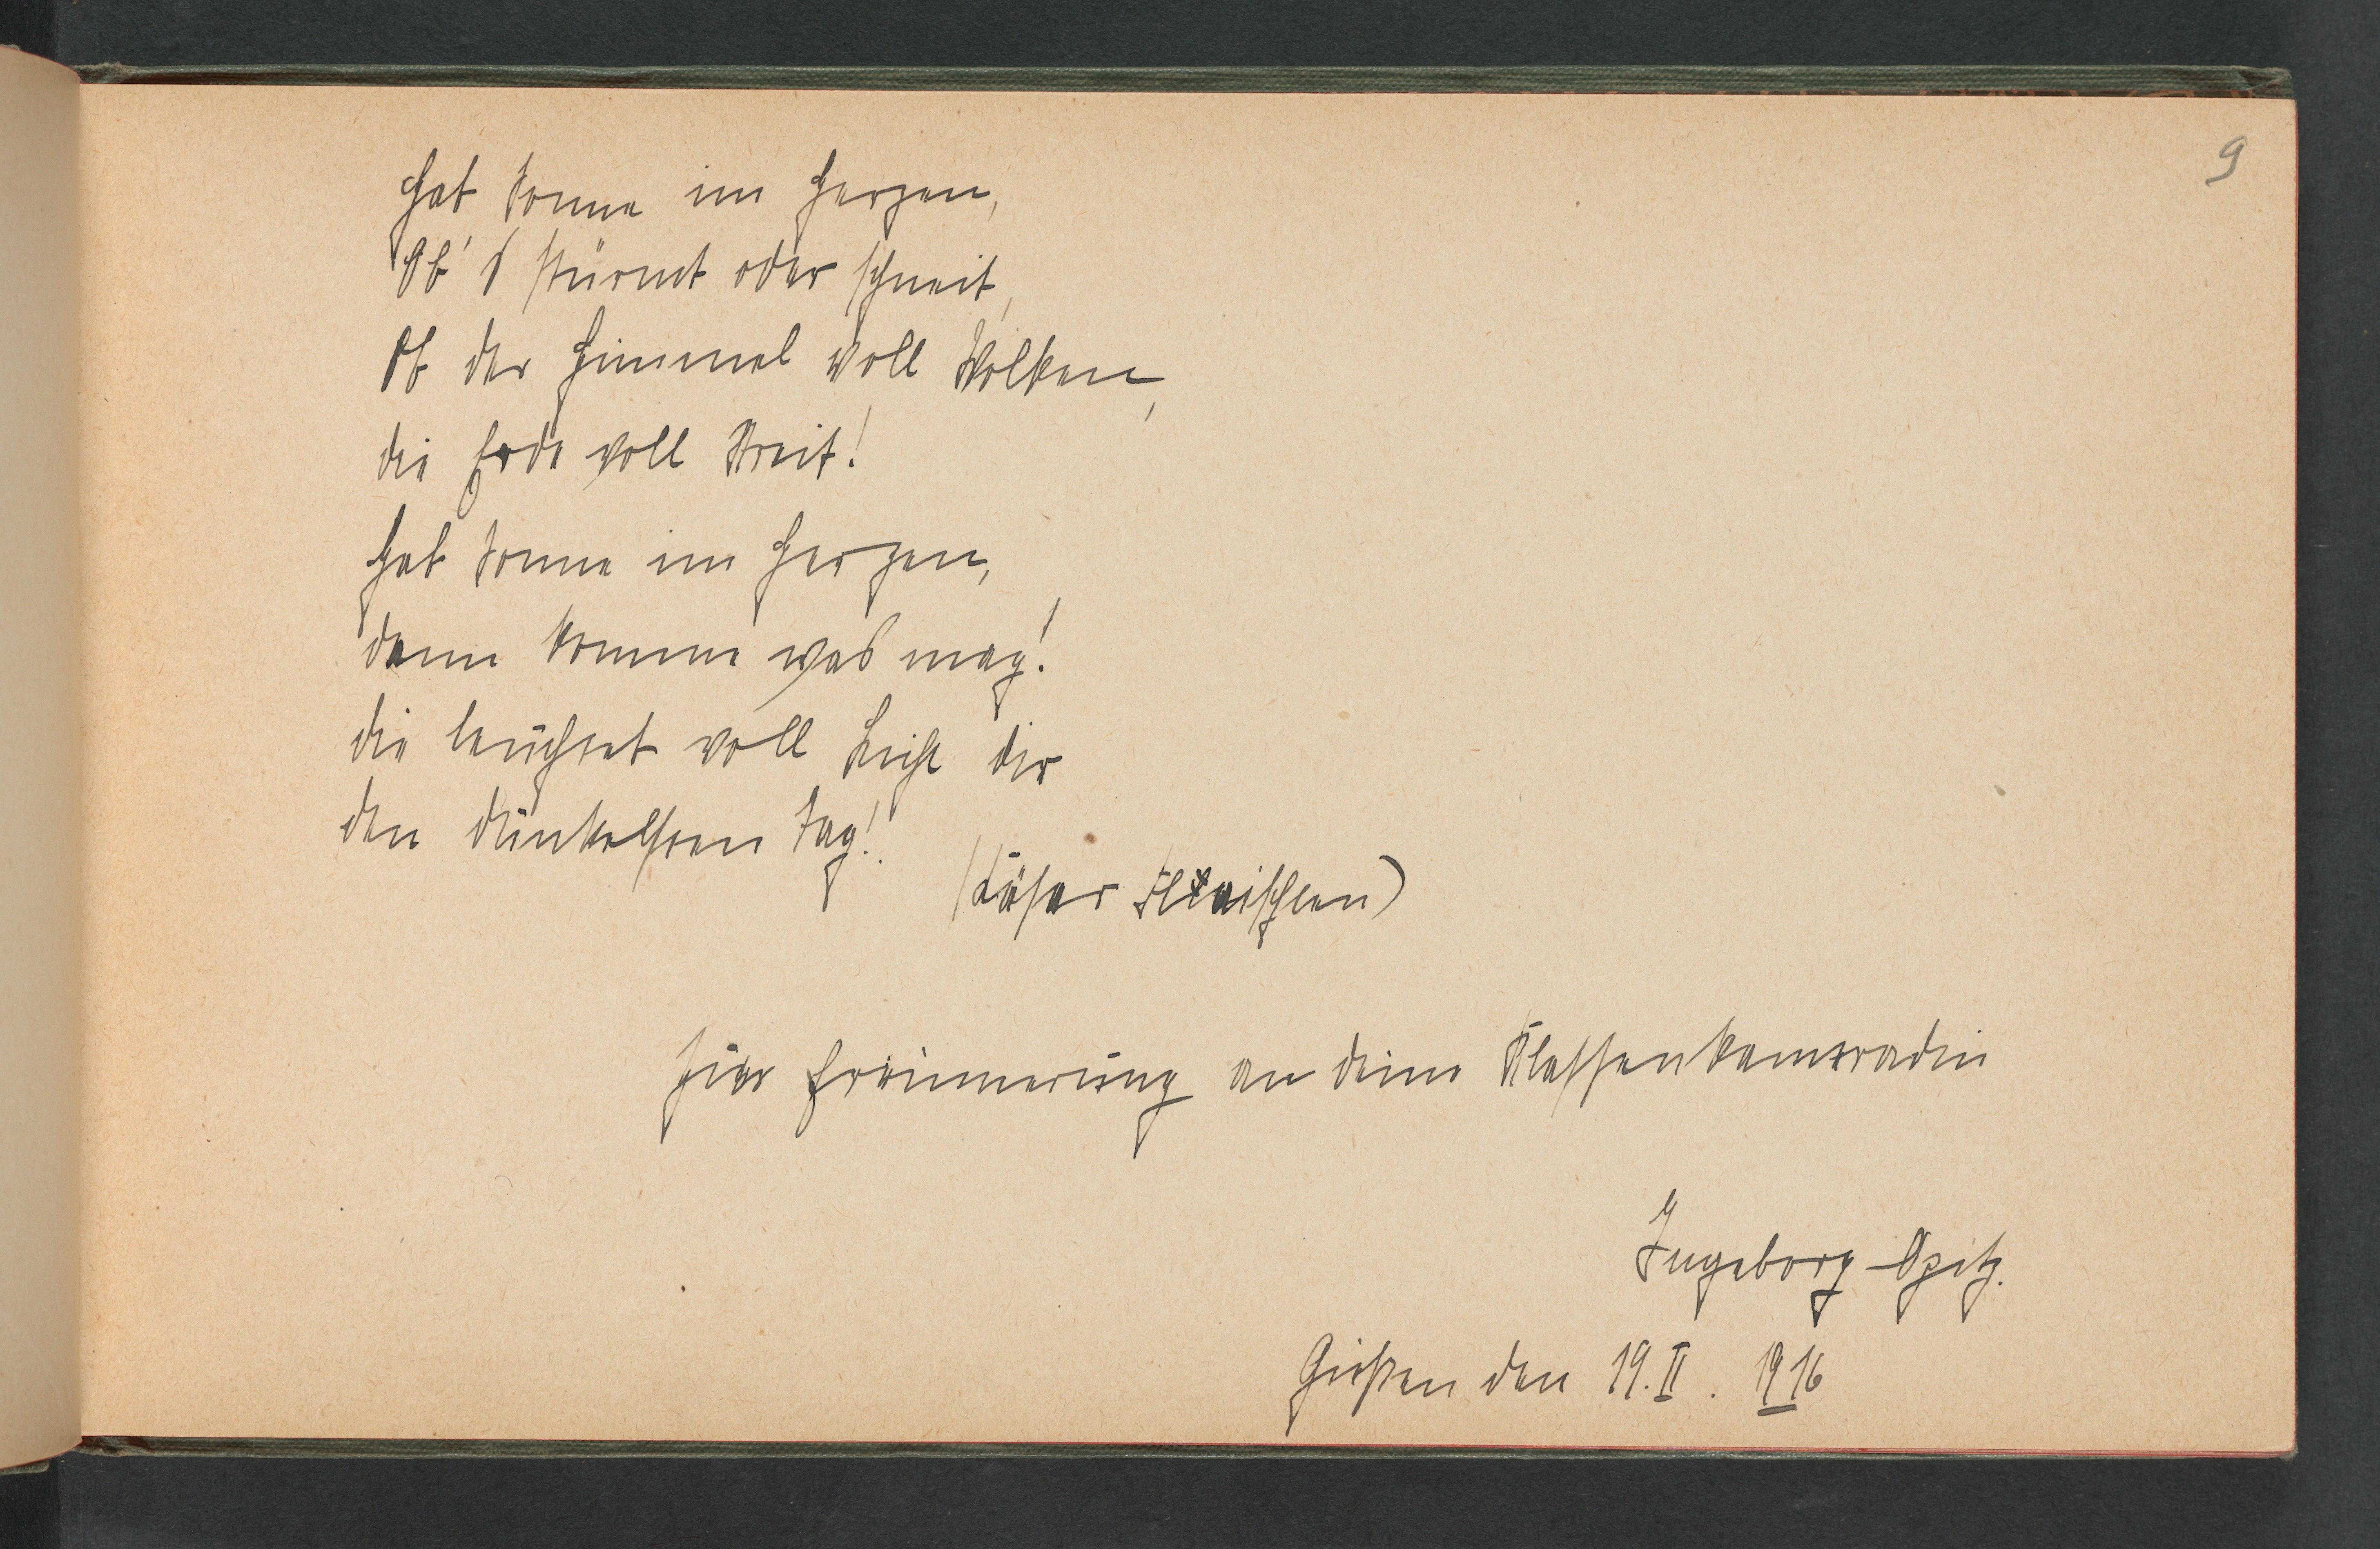 9
Hab Sonne im Herzen,
Ob's stürmt oder schneit,
Ob der Himmel voll Wolken,
die Erde voll Streit!
Hab Sonne im Herzen,
dann komme was mag!
die leuchtet voll Licht dir
den dunkelsten Tag!
(Cäsar Flaischlen)
Zur Erinnerung an deine Klassenkameradin
Ingeborg Opitz.
Gießen den 19. II. 1916